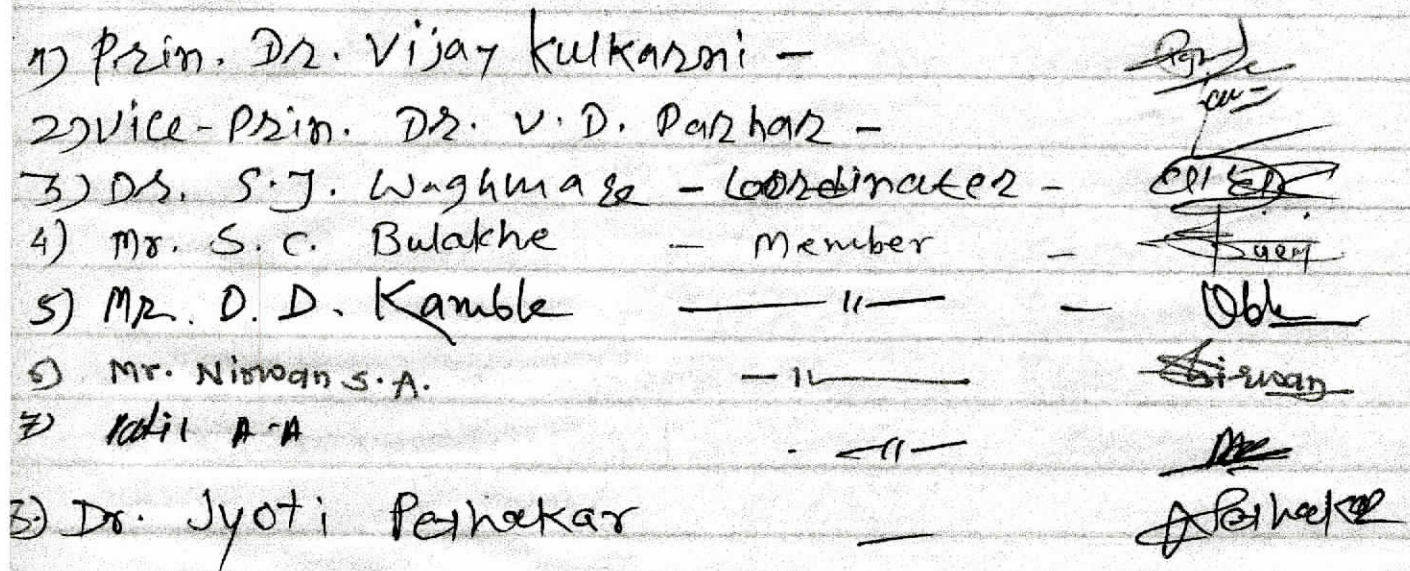 1) Prin. Dr. Vijay Kulkarni -
2) Vice-Prin. Dr. V. D. Parhar -
3) Dr. S.J. Waghmare - Coordinater -
4) Mr. S. C. Bulakhe - Member -
5) Mr. D. D. Kamble — 11 — -
6) Mr. Nirwan S.A. - 11 — Nirwan
7) Patil A.A - 11 -
8) Dr. Jyoti Peshakar — Peshakar